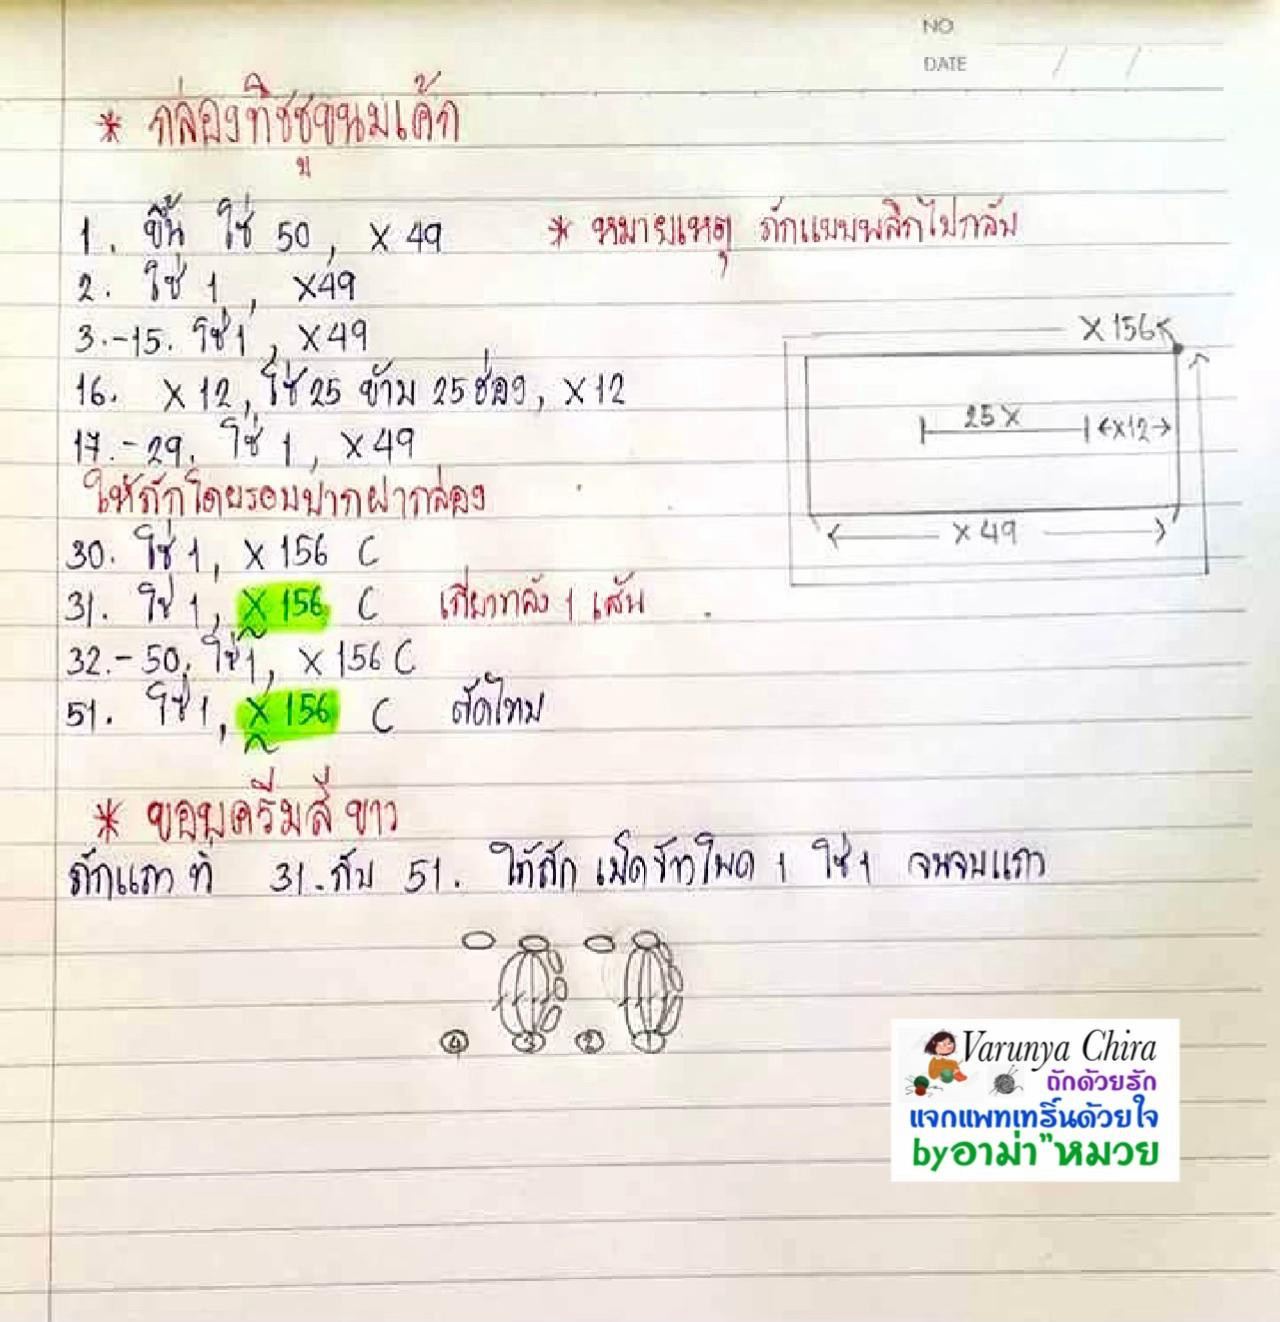 NO
DATE / /
* กล่องทิชชูขนมเค้ก
1. ขึ้น โซ่ 50, X 49 * หมายเหตุ ถักแบบพลิกไปกลับ
2. โซ่ 1, X49
3.-15. โซ่1, X49
16. X 12, โซ่25 ข้าม 25 ช่อง, X12
17.-29. โซ่ 1, X 49
ให้ถักโดยรอบปากฝากล่อง
30. โซ่ 1, X 156 C
31. โซ่ 1, X 156 C เกี่ยวหลัง 1 เส้น
32.-50. โซ่1, X 156 C
51. โซ่1, X 156 C ตัดไหม
X 156
25 X
X12
X 49
* ขอบครีมสีขาว
ถักแถวที่ 31.กับ 51. ให้ถัก เม็ดข้าวโพด 1 โซ่1 จนจบแถว
4 3 2 1
Varunya Chira
ถักด้วยรัก
แจกแพทเทริ์นด้วยใจ
byอาม่า"หมวย